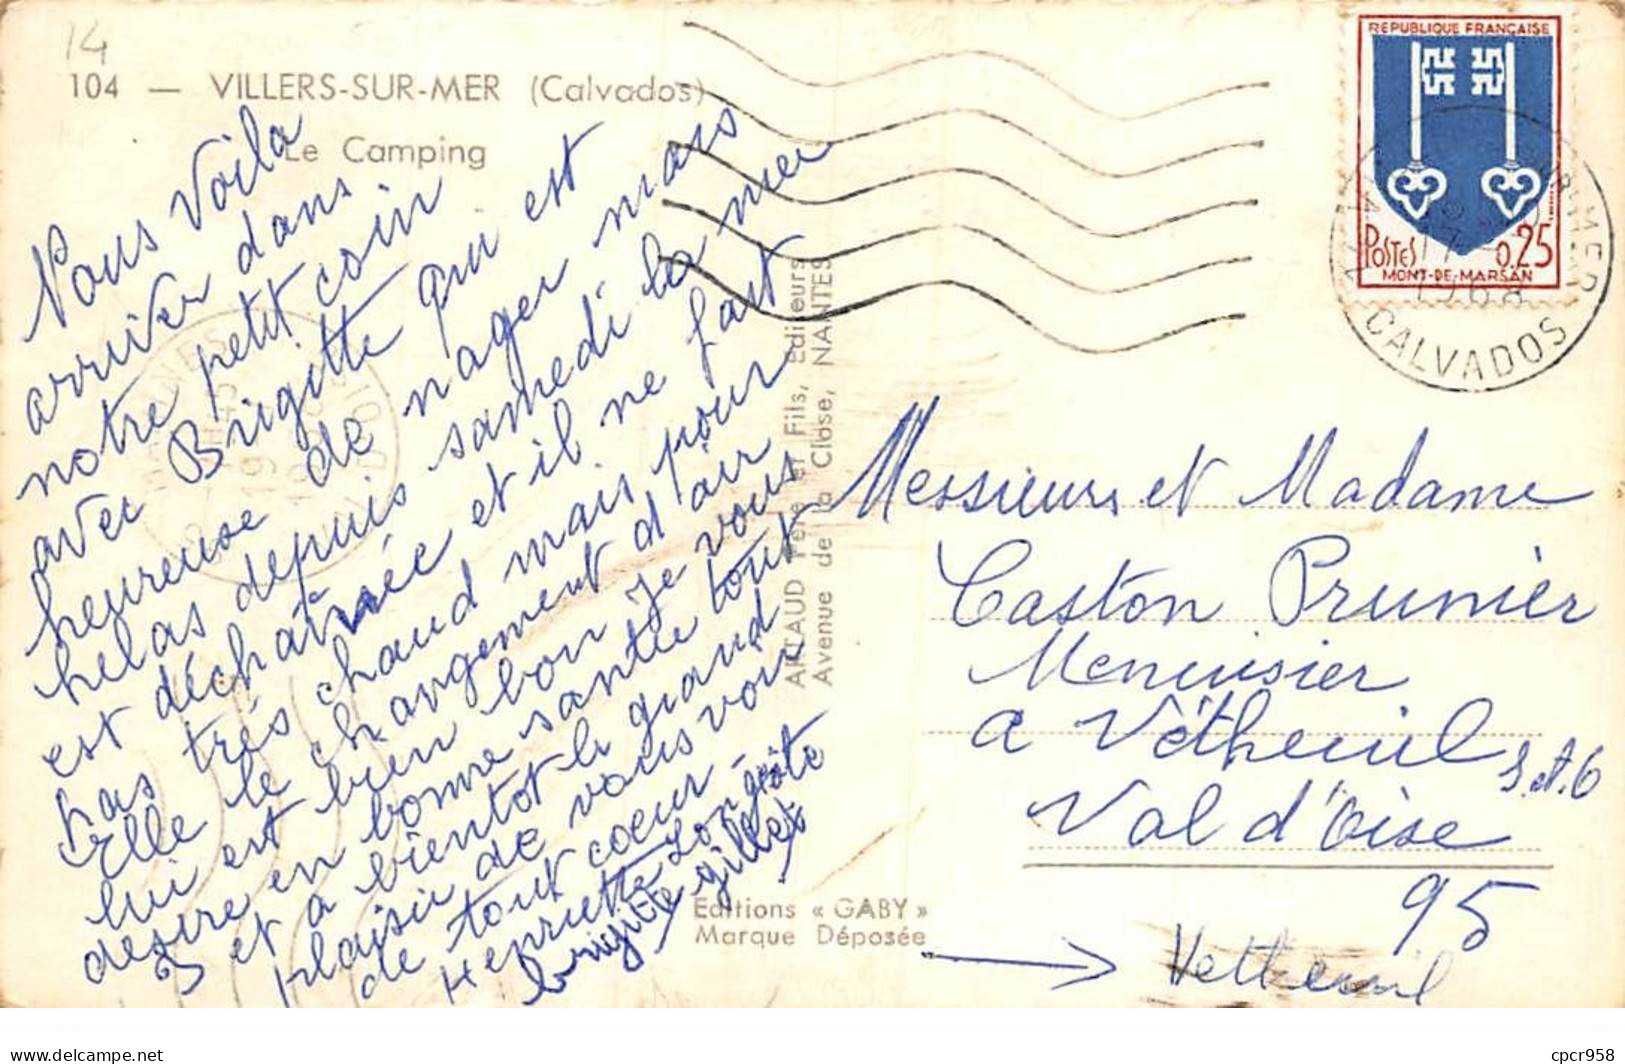 14
104 — VILLERS-SUR-MER (Calvados)
Le Camping
Nous Voila
arriver dans
notre petit coin
avec Brigitte qui est
heureuse de nager mais
helas depuis samedi la mer
est déchainée et il ne fait
pas très chaud mais pour
Elle le changement d'air
lui est bien bon je vous
desire en bonne santée tout
et a bientot le grand
plaisir de vous voir
de tout coeur -
Henriette
brigitte gilles
ARTAUD Père et Fils, Editeurs
Avenue de la Close, NANTES
Editions « GABY »
Marque Déposée
REPUBLIQUE FRANÇAISE
POSTES 0,25
MONT-DE-MARSAN
MER
1968
CALVADOS
Messieurs et Madame
Gaston Prunier
Menuisier
a Vétheuil
S.et.O
Val d'Oise
95
Vetheuil
Delcampe.net
cpcr958